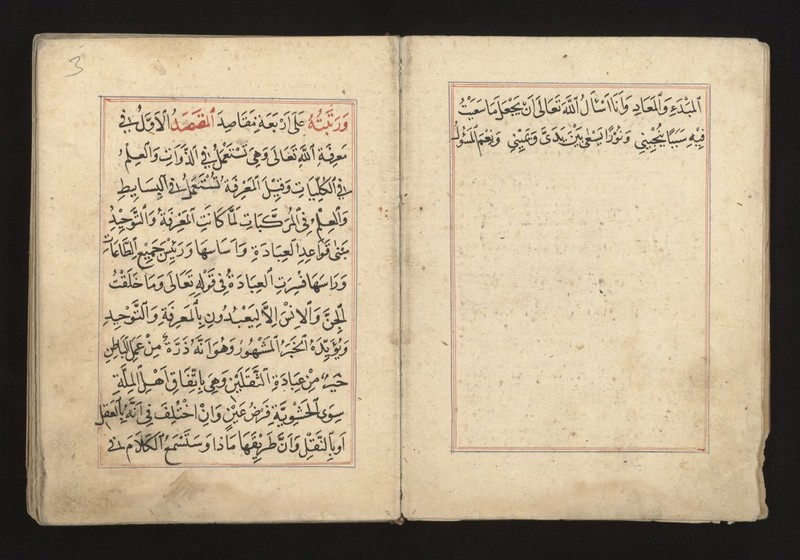 المبدء والمعاد وانا اسأل الله تعالى ان يجعل ما سعيت
فيه سببا ينجيني ونورا يسعى بين يدى ويميني ونعم المسؤل
3
ورتبته على اربعة مقاصد المقصد الاول في
معرفة الله تعالى وهي تستعمل في الذوات والعلم
في الكليات وقيل المعرفة تستعمل في البسايط
والعلم في المركبات لما كانت المعرفة والتوحيد
مبنى قواعد العبادة واساسها ورئيس جميع الطاعات
وراسها فسرت العبادة في قوله تعالى وما خلقت
الجن والانس الا ليعبدون بالمعرفة والتوحيد
ويؤيده الخبر المشهور وهو انه ذرة من عمل الباطن
خير من عبادة الثقلين وهي باتفاق اهل الملة
سوى الحشوية فرض عين وان اختلف في انه بالعقل
او بالنقل وان طريقها ماذا وستسمع الكلام في